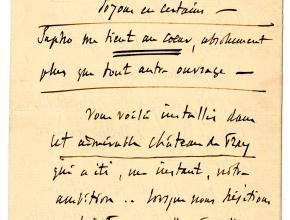 soyons en certains —
Sapho me tient au cœur, absolument
plus que tout autre ouvrage —
Vous voilà installés dans
cet admirable château du
qui a été, un instant, notre
ambition .. lorsque nous hésitions